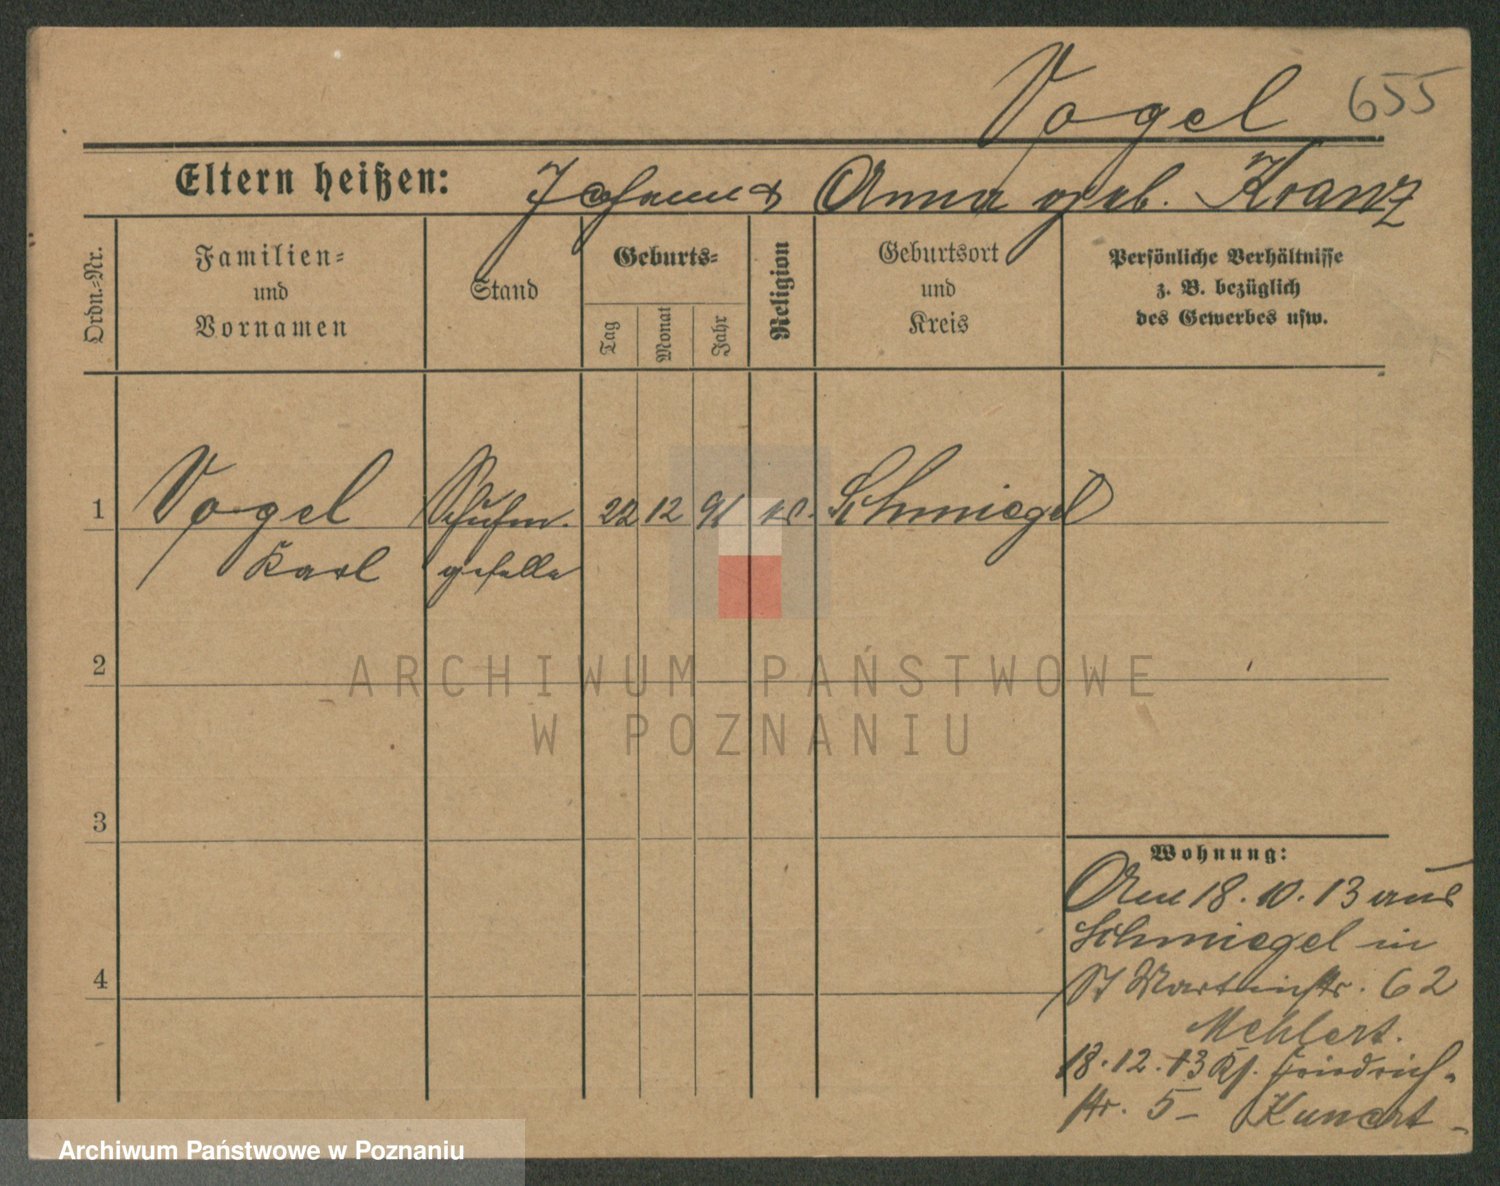 Vogel 655
Eltern heißen: Johann & Anna geb. Kranz
Ordn.-Nr.
Familien-
und
Vornamen
Stand
Geburts-
Tag
Monat
Jahr
Religion
Geburtsort
und
Kreis
Persönliche Verhältnisse
z. B. bezüglich
des Gewerbes usw.
1 Vogel Schuhm. 22 12 91 Schmiegel
Karl geselle
2
3
4
Wohnung:
Am 18.10.13 aus
Schmiegel in
St Martinstr. 62
Mehlert.
18.12.13 Kf. Friedrich-
str. 5 - Kunert -
ARCHIWUM PAŃSTWOWE
W POZNANIU
Archiwum Państwowe w Poznaniu